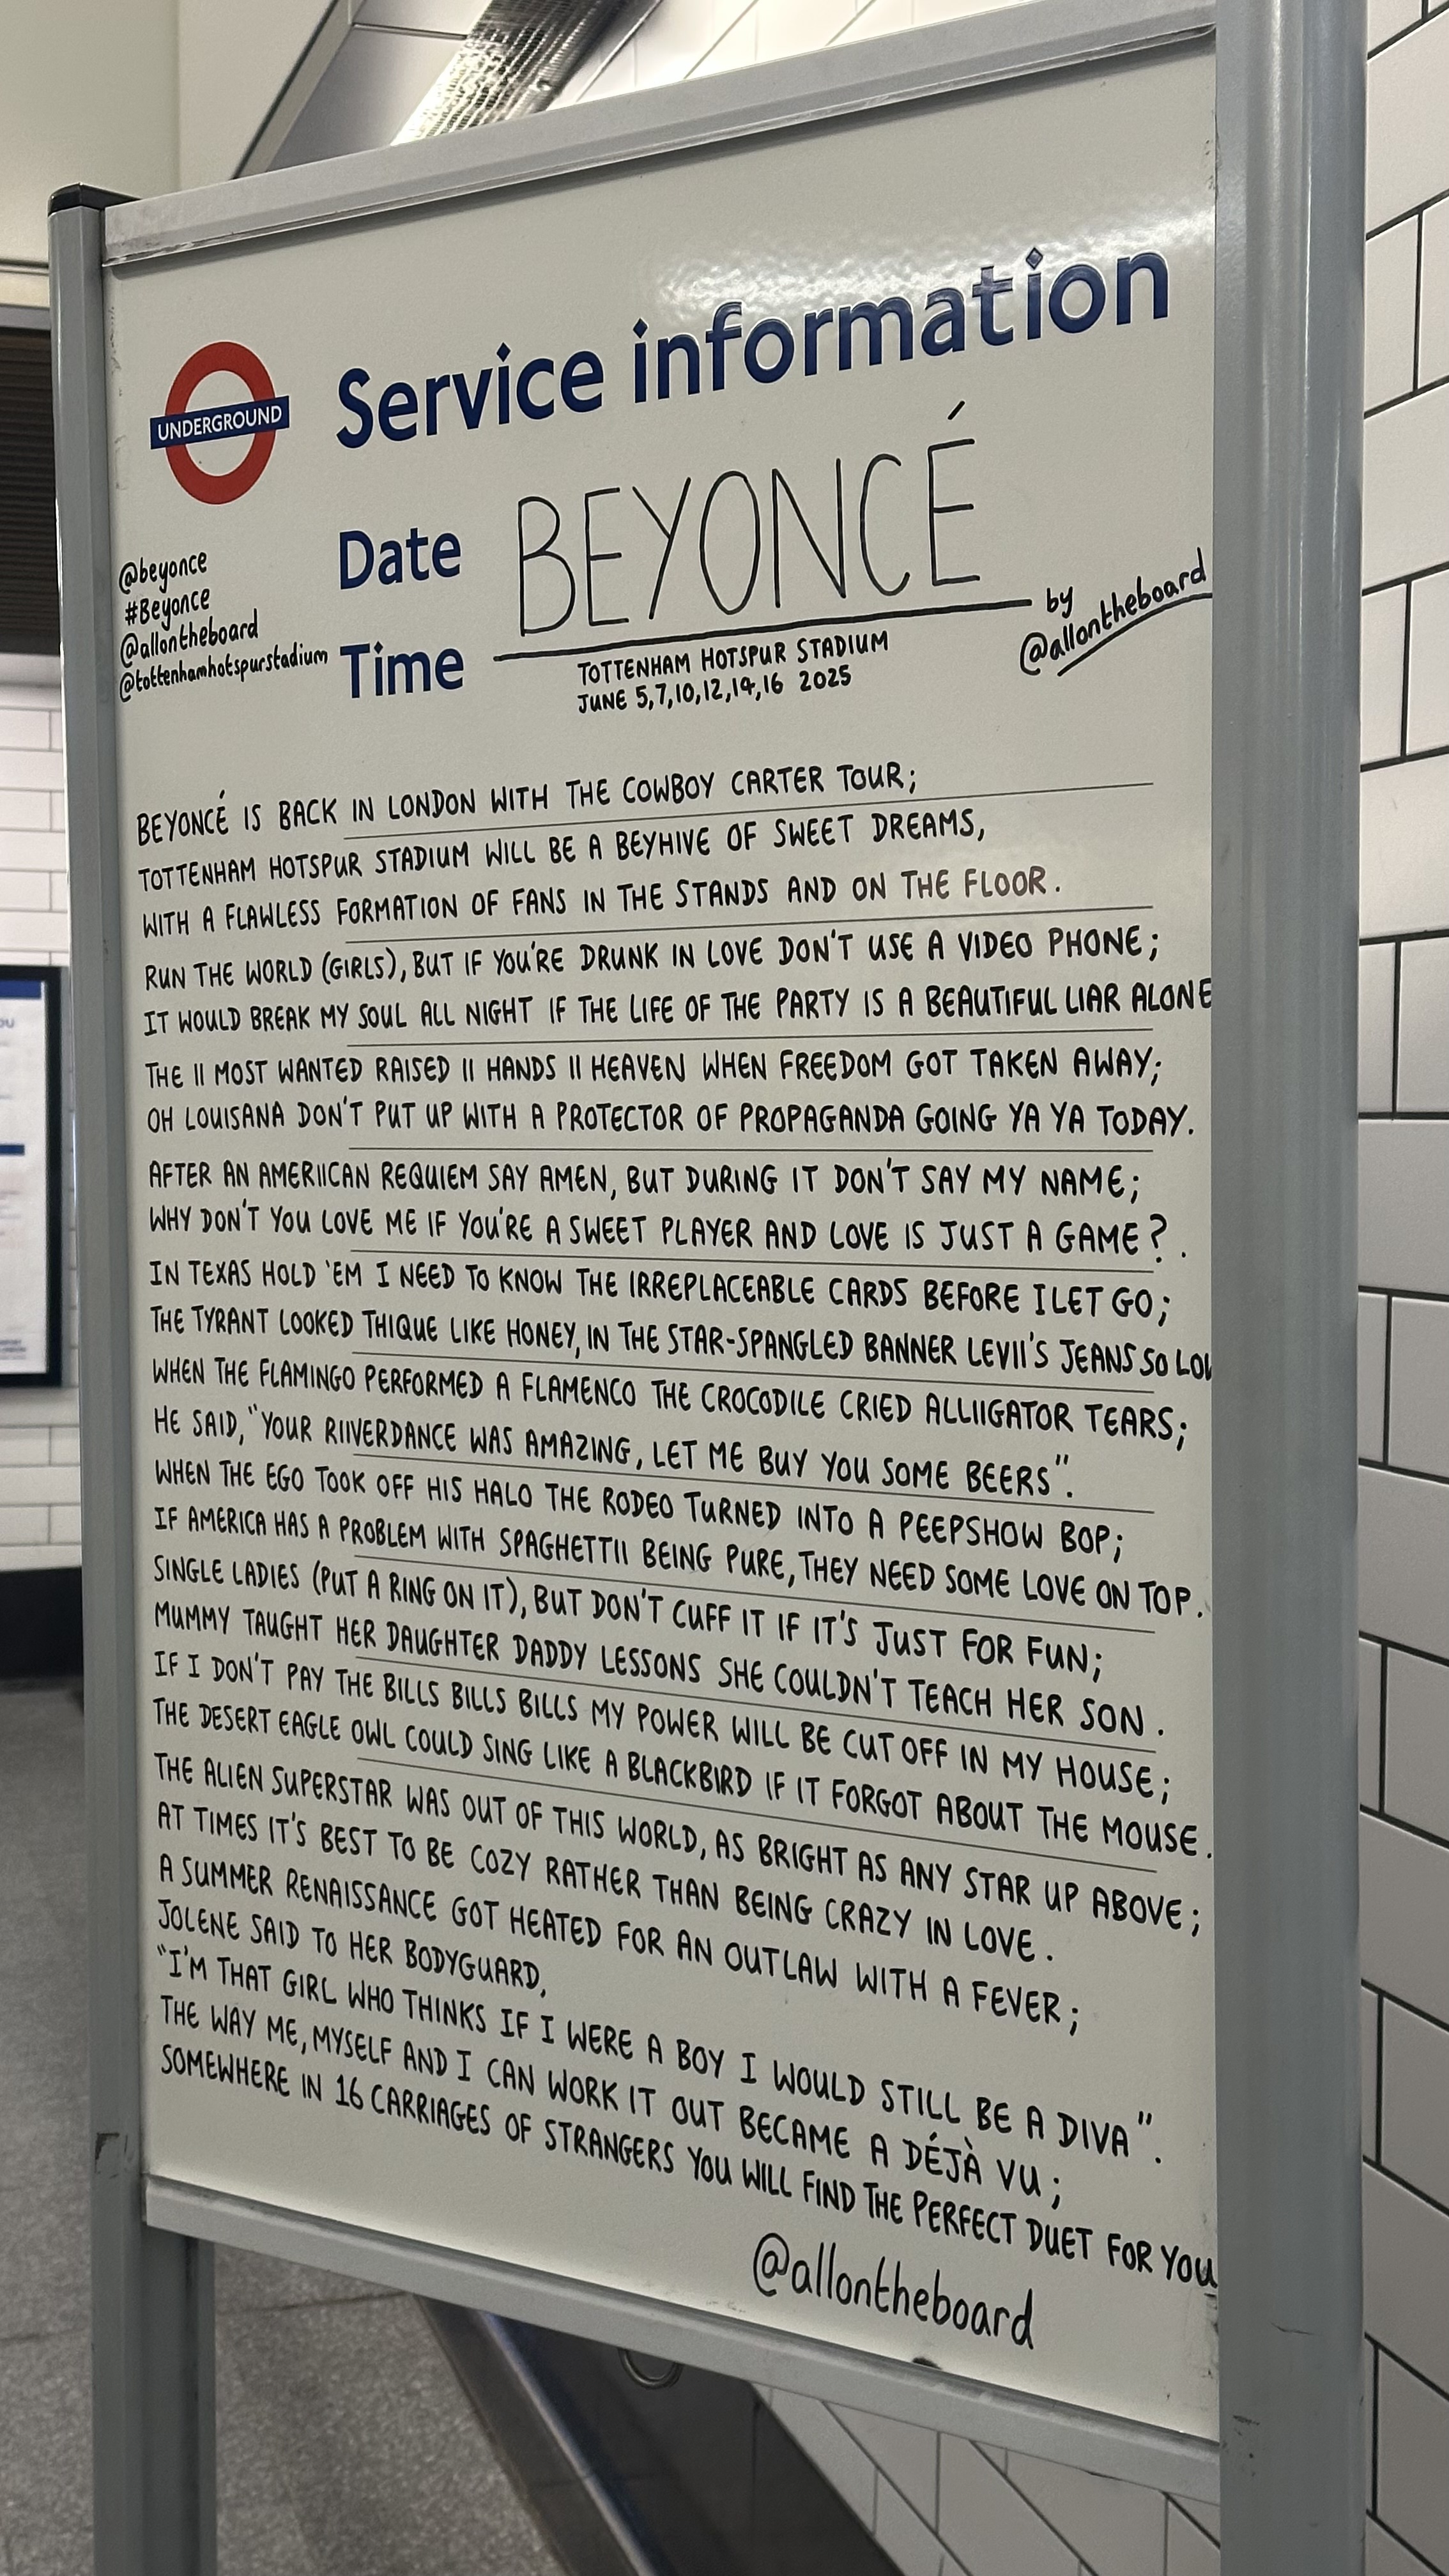 Service information
UNDERGROUND
Date
BEYONCÉ
Time
@beyonce
#Beyonce
@allontheboard
@tottenhamhotspurstadium
by
@allontheboard
TOTTENHAM HOTSPUR STADIUM
JUNE 5,7,10,12,14,16 2025
BEYONCÉ IS BACK IN LONDON WITH THE COWBOY CARTER TOUR;
TOTTENHAM HOTSPUR STADIUM WILL BE A BEYHIVE OF SWEET DREAMS,
WITH A FLAWLESS FORMATION OF FANS IN THE STANDS AND ON THE FLOOR.
RUN THE WORLD (GIRLS), BUT IF YOU'RE DRUNK IN LOVE DON'T USE A VIDEO PHONE;
IT WOULD BREAK MY SOUL ALL NIGHT IF THE LIFE OF THE PARTY IS A BEAUTIFUL LIAR ALONE
THE II MOST WANTED RAISED II HANDS II HEAVEN WHEN FREEDOM GOT TAKEN AWAY;
OH LOUISANA DON'T PUT UP WITH A PROTECTOR OF PROPAGANDA GOING YA YA TODAY.
AFTER AN AMERIICAN REQUIEM SAY AMEN, BUT DURING IT DON'T SAY MY NAME;
WHY DON'T YOU LOVE ME IF YOU'RE A SWEET PLAYER AND LOVE IS JUST A GAME?.
IN TEXAS HOLD 'EM I NEED TO KNOW THE IRREPLACEABLE CARDS BEFORE I LET GO;
THE TYRANT LOOKED THIQUE LIKE HONEY, IN THE STAR-SPANGLED BANNER LEVII'S JEANS SO LOW
WHEN THE FLAMINGO PERFORMED A FLAMENCO THE CROCODILE CRIED ALLIIGATOR TEARS;
HE SAID, "YOUR RIIVERDANCE WAS AMAZING, LET ME BUY YOU SOME BEERS".
WHEN THE EGO TOOK OFF HIS HALO THE RODEO TURNED INTO A PEEPSHOW BOP;
IF AMERICA HAS A PROBLEM WITH SPAGHETTII BEING PURE, THEY NEED SOME LOVE ON TOP.
SINGLE LADIES (PUT A RING ON IT), BUT DON'T CUFF IT IF IT'S JUST FOR FUN;
MUMMY TAUGHT HER DAUGHTER DADDY LESSONS SHE COULDN'T TEACH HER SON.
IF I DON'T PAY THE BILLS BILLS BILLS MY POWER WILL BE CUT OFF IN MY HOUSE;
THE DESERT EAGLE OWL COULD SING LIKE A BLACKBIRD IF IT FORGOT ABOUT THE MOUSE.
THE ALIEN SUPERSTAR WAS OUT OF THIS WORLD, AS BRIGHT AS ANY STAR UP ABOVE;
AT TIMES IT'S BEST TO BE COZY RATHER THAN BEING CRAZY IN LOVE.
A SUMMER RENAISSANCE GOT HEATED FOR AN OUTLAW WITH A FEVER;
JOLENE SAID TO HER BODYGUARD,
"I'M THAT GIRL WHO THINKS IF I WERE A BOY I WOULD STILL BE A DIVA".
THE WAY ME, MYSELF AND I CAN WORK IT OUT BECAME A DÉJÀ VU;
SOMEWHERE IN 16 CARRIAGES OF STRANGERS YOU WILL FIND THE PERFECT DUET FOR YOU
@allontheboard